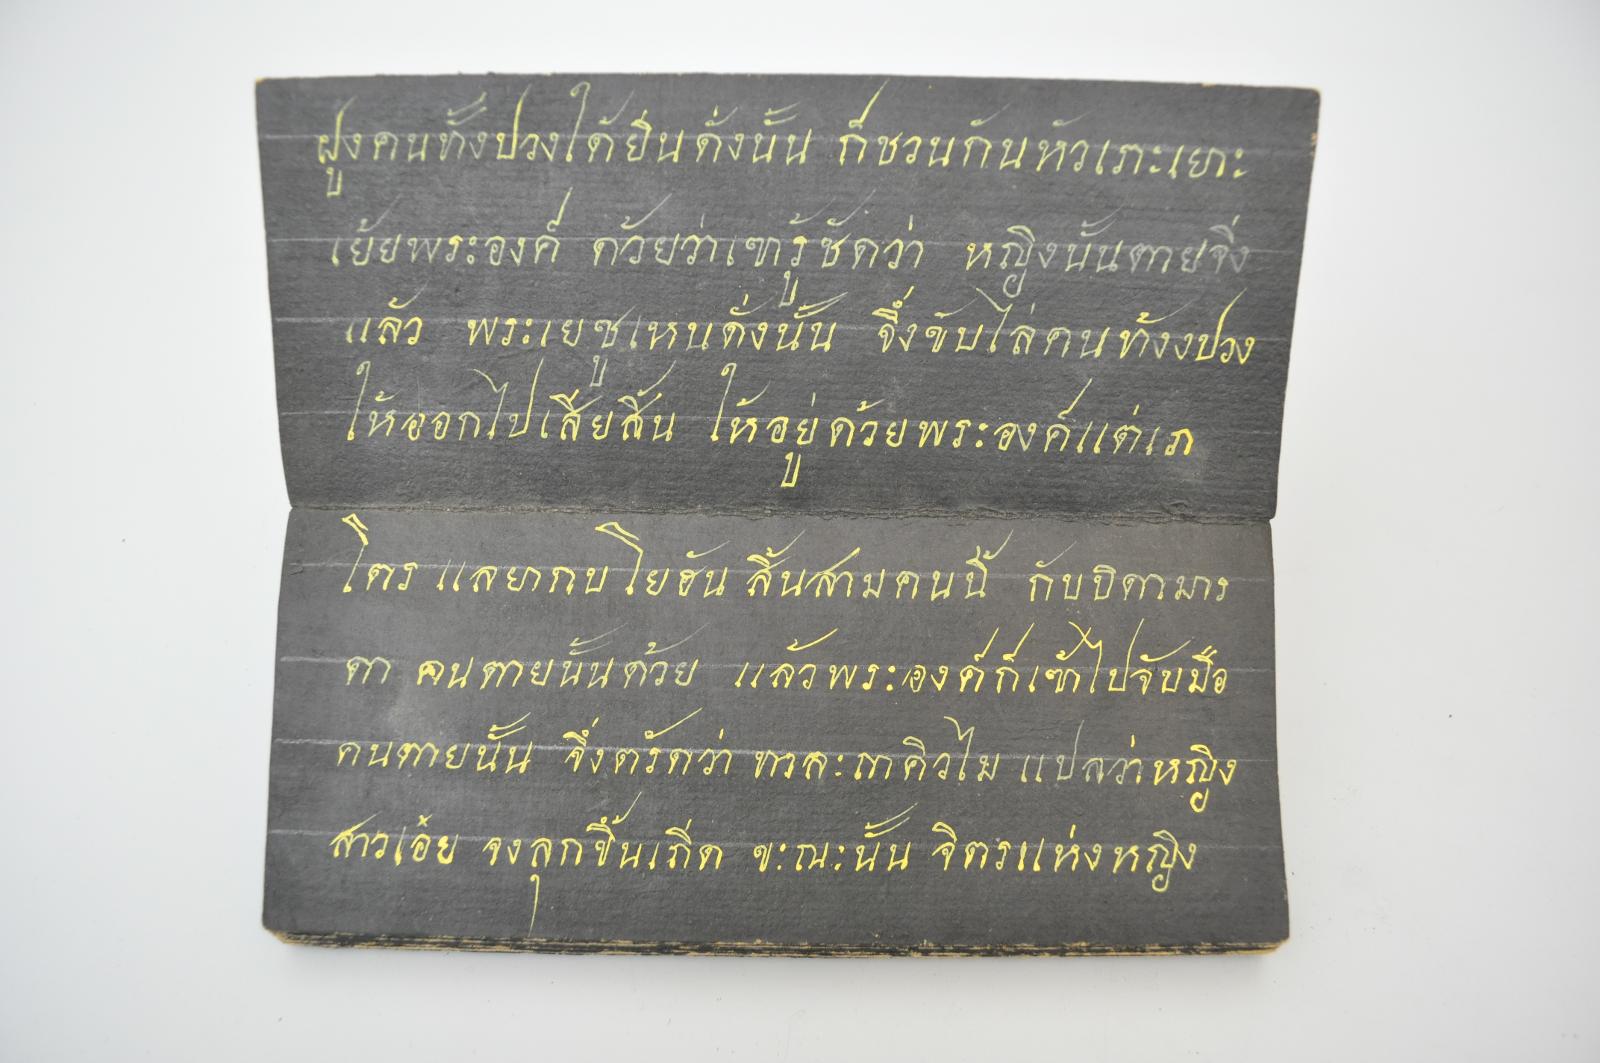 ฝูงคนทั้งปวงได้ยินดั่งนั้น ก็ชวนกันหัวเราะเยาะ
เย้ยพระองค์ ด้วยว่าเขารู้ชัดว่า หญิงนั้นตายจิ่ง
แล้ว พระเยซูเหนดั่งนั้น จึ่งขับไล่คนทั้งงปวง
ให้ออกไปเสียสิ้น ให้อยู่ด้วยพระองค์แต่เภ
โตร แลยากบ โยฮัน สิ้นสามคนนี้ กับบิดามาร
ดา คนตายนั้นด้วย แล้วพระองค์ก็เข้าไปจับมือ
คนตายนั้น จึ่งตรัดว่า ทาละถาคิวไม แปลว่าหญิง
สาวเอ๋ย จงลุกขึ้นเถีด ขะณะนั้น จิตรแห่งหญิง